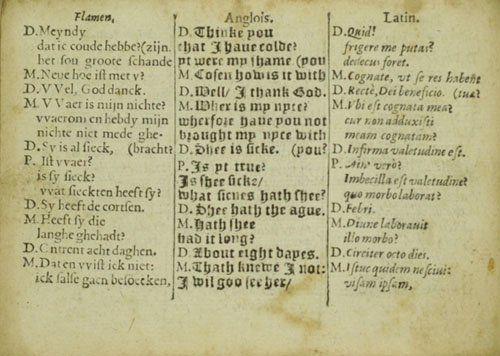 Flamen,
D. Meyndy
dat ic coude hebbe? (zijn.
het sou groote schande
M. Neue hoe ist met v?
D. VVel, God danck.
M. VVaer is mijn nichte?
vvaerom en hebdy mijn
nichte niet mede ghe-
D. Sy is al sieck, (bracht?
P. Ist vvaer?
is sy sieck?
vvat sieckten heeft sy?
D. Sy heeft de cortsen.
M. Heeft sy die
langhe ghehadt?
D. Ontrent acht daghen.
M. Dat en vvist ick niet:
ick salse gaen besoecken,
Anglois.
D. Thinke you
that I haue colde?
yt were my shame (you
M. Cosen how is it with
D. Well/ I thank God.
M. Wher is my nyce?
wherfore haue you not
brought my nyce with
D. Shee is sicke. (you?
P. Is yt true?
Is shee sicke/
what sicnes hath shee?
D. Shee hath the ague.
M. Hath shee
had it long?
D. About eight dayes.
M. Thath knewe I not:
I wil goo see her/
Latin.
D. Quid!
frigere me putas?
dedecus foret.
M. Cognate, vt se res habent
D. Rectè, Dei beneficio. (tuæ?
M. Vbi est cognata mea?
cur non adduxisti
meam cognatam?
D. Infirma valetudine est.
P. Ain' vero?
Imbecilla est valetudine?
quo morbo laborat?
D. Febri.
M. Diu ne laborauit
illo morbo?
D. Circiter octo dies.
M. Istuc quidem nesciui:
visam ipsam,